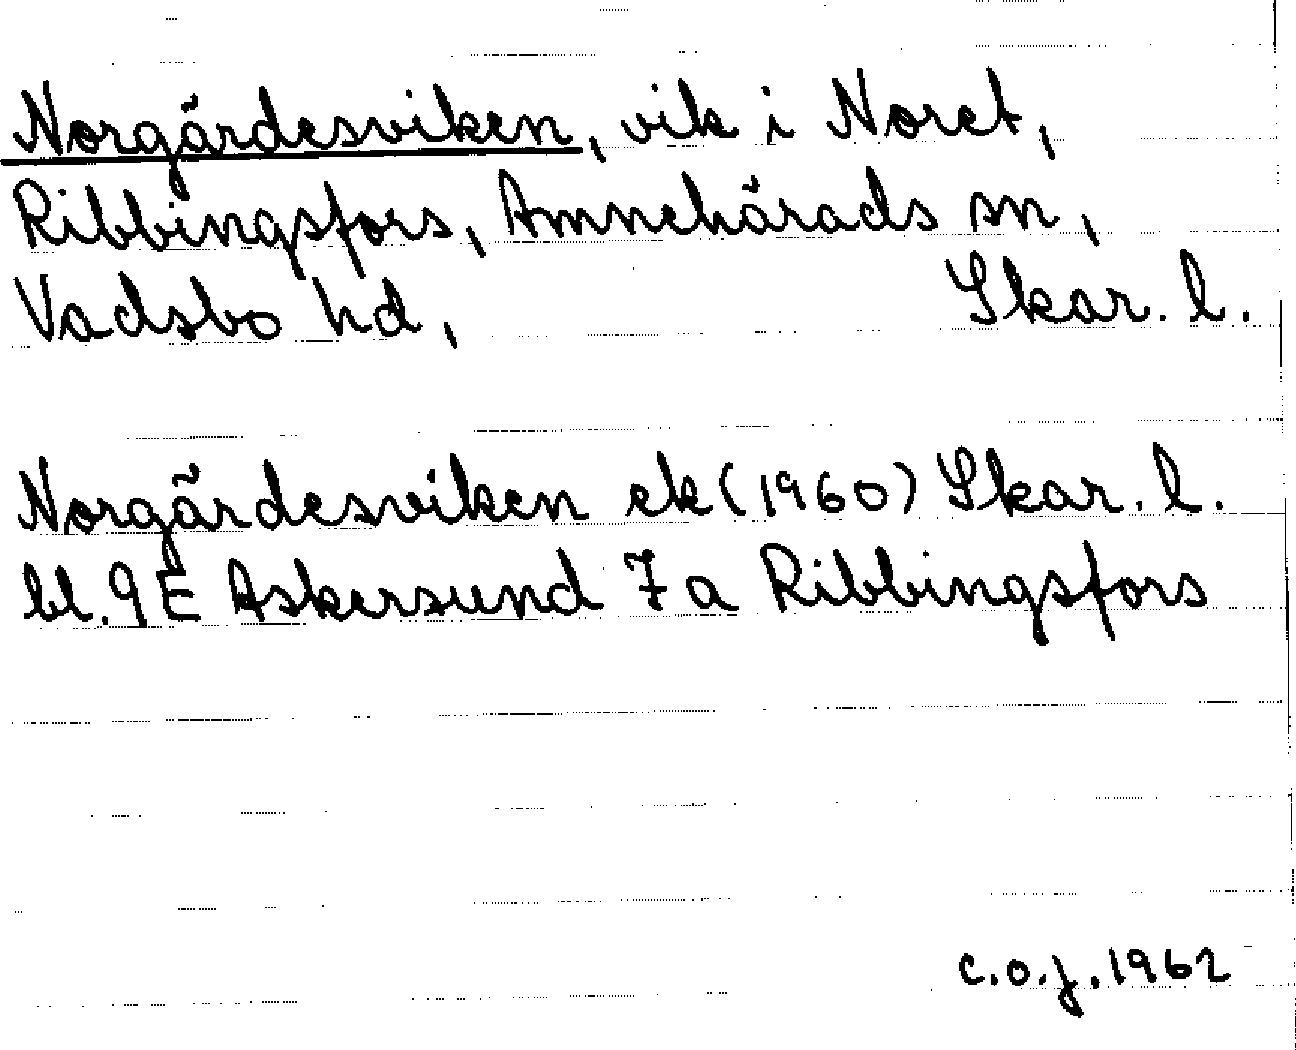 Norgärdesviken, vik i Noret,
Ribbingsfors, Amnehärads sn,
Vadsbo hd, Skar. l.
Norgärdesviken ek (1960) Skar. l.
bl. 9 E Askersund 7 a Ribbingsfors
c.o.j. 1962